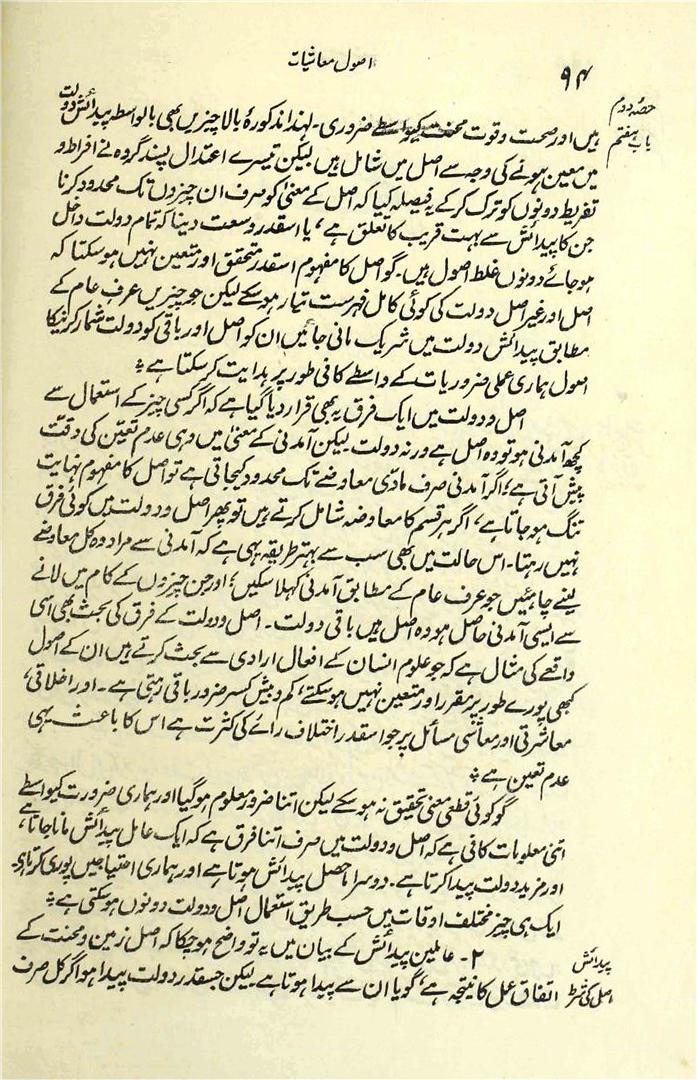 ۹۴
اصول معاشیات
حصہ دوم
باب ہفتم
ہیں اور صحت وقوت محنت کیواسطے ضروری۔ لہٰذا مذکورۂ بالا چیزیں بھی بالواسطہ پیدائش دولت
میں معین ہونے کی وجہ سے اصل میں شامل ہیں لیکن تیسرے اعتدال پسند گروہ نے افراط و
تفریط دونوں کو ترک کرکے یہ فیصلہ کیا کہ اصل کے معنی کو صرف ان چیزوں تک محدود کرنا
جن کا پیدائش سے بہت قریب کا تعلق ہے، یا اسقدر وسعت دینا کہ تمام دولت داخل
ہو جائے دونوں غلط اصول ہیں۔ گو اصل کا مفہوم اسقدر متحقق اور متعین نہیں ہو سکتا کہ
اصل اور غیر اصل دولت کی کوئی کامل فہرست تیار ہو سکے لیکن جو چیزیں عرف عام کے
مطابق پیدائش دولت میں شریک مانی جائیں ان کو اصل اور باقی کو دولت شمار کرنیکا
اصول ہماری عملی ضروریات کے واسطے کافی طور پر ہدایت کر سکتا ہے ؞
اصل و دولت میں ایک فرق یہ بھی قرار دیا گیا ہے کہ اگر کسی چیز کے استعمال سے
کچھ آمدنی ہو تو وہ اصل ہے ورنہ دولت لیکن آمدنی کے معنی میں وہی عدم تعین کی دقت
پیش آتی ہے، اگر آمدنی صرف مادّی معاوضے تک محدود کیجاتی ہے تو اصل کا مفہوم نہایت
تنگ ہو جاتا ہے، اگر ہر قسم کا معاوضہ شامل کرتے ہیں تو پھر اصل و دولت میں کوئی فرق
نہیں رہتا۔ اس حالت میں بھی سب سے بہتر طریقہ یہی ہے کہ آمدنی سے مراد وہ کل معاوضے
لینے چاہئیں جو عرف عام کے مطابق آمدنی کہلا سکیں، اور جن چیزوں کے کام میں لانے
سے ایسی آمدنی حاصل ہو وہ اصل ہیں باقی دولت۔ اصل و دولت کے فرق کی بحث بھی اسی
واقعے کی مثال ہے کہ جو علوم انسان کے افعال ارادی سے بحث کرتے ہیں ان کے اصول
کبھی پورے طور پر مقرر اور متعین نہیں ہو سکتے، کم و بیش کسر ضرور باقی رہتی ہے۔ اور اخلاقی،
معاشرتی اور معاشی مسائل پر جو اسقدر اختلاف رائے کی کثرت ہے اس کا باعث یہی
عدم تعین ہے ؞
گو کوئی قطعی معنی تحقیق نہ ہو سکے لیکن اتنا ضرور معلوم ہو گیا اور ہماری ضرورت کیواسطے
اتنی معلومات کافی ہے کہ اصل و دولت میں صرف اتنا فرق ہے کہ ایک عامل پیدائش مانا جاتا ہے،
اور مزید دولت پیدا کرتا ہے۔ دوسرا ماحصل پیدائش ہوتا ہے اور ہماری احتیاجیں پوری کرتا ہے۔
ایک ہی چیز مختلف اوقات میں حسب طریق استعمال اصل و دولت دونوں ہو سکتی ہے ؞
پیدائش
اصل کی شرط
۲۔ عاملین پیدائش کے بیان میں یہ تو واضح ہو چکا کہ اصل زمین و محنت کے
اتفاق عمل کا نتیجہ ہے، گویا ان سے پیدا ہوتا ہے لیکن جسقدر دولت پیدا ہو اگر کل صرف